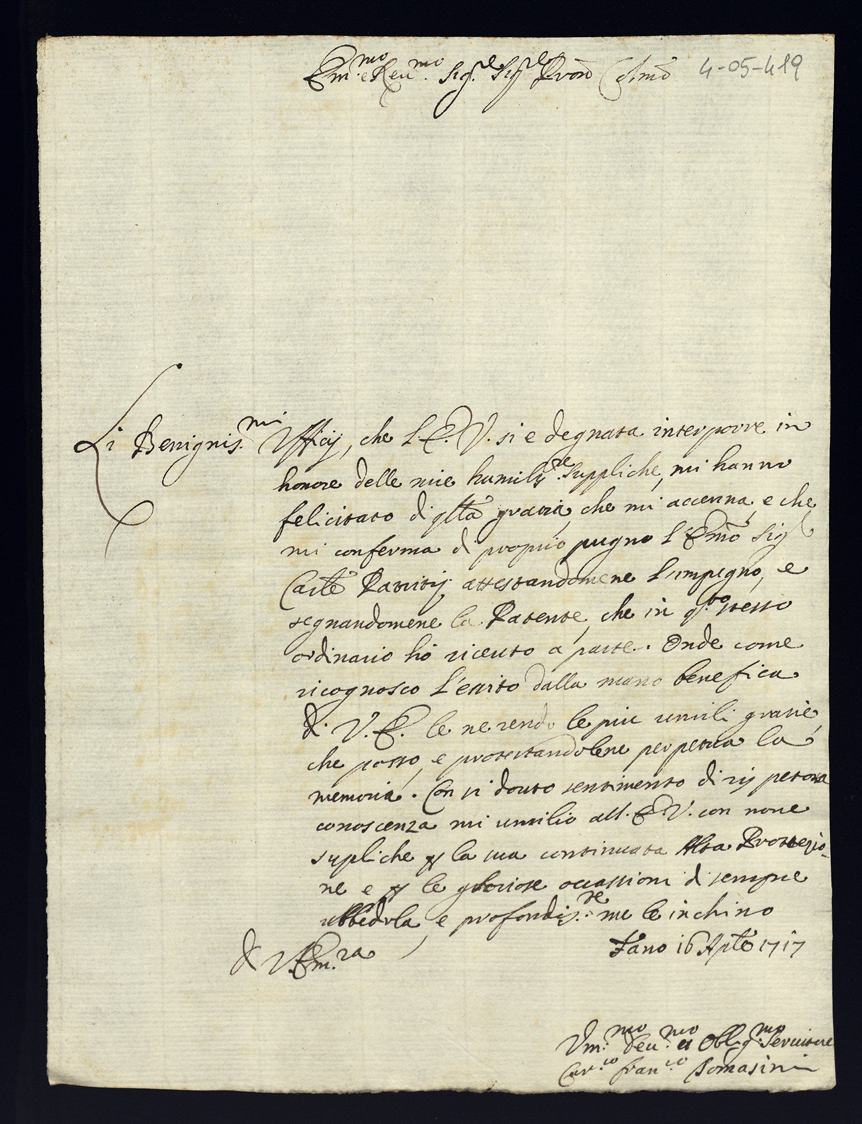 Em.mo e Reu.mo Sig.re Sig.re Pron Colmo 4-05-419
Li Benignis.mi Vfficij, che L'E. V. si è degnata interporre in
honore delle mie humilis.me suppliche, mi hanno
felicitato di qlla grazia, che mi accenna, e che
mi conferma di proprio pugno L'Emo Sigr
Carle Patritij attestandomene L'impegno, e
segnandomene la Patente, che in q.sto stesso
ordinario hò riceuto a parte. Onde come
ricognosco L'esito dalla mano benefica
di V. E. le ne rendo le più umili grazie,
che posso, e protestandolene perpetua la
memoria. Con si douto sentimento di rispetosa
conoscenza mi umilio all' E. V. con noue
supliche p la sua continuata Alta Protezio-
ne e p le gloriose occassioni di sempre
ubbedirla, e profondis.te me le inchino
Fano 16 Aple 1717
di V. Em.za
Vm.mo deu.mo et Obblig.mo Seruitore
fran.co Tomasini